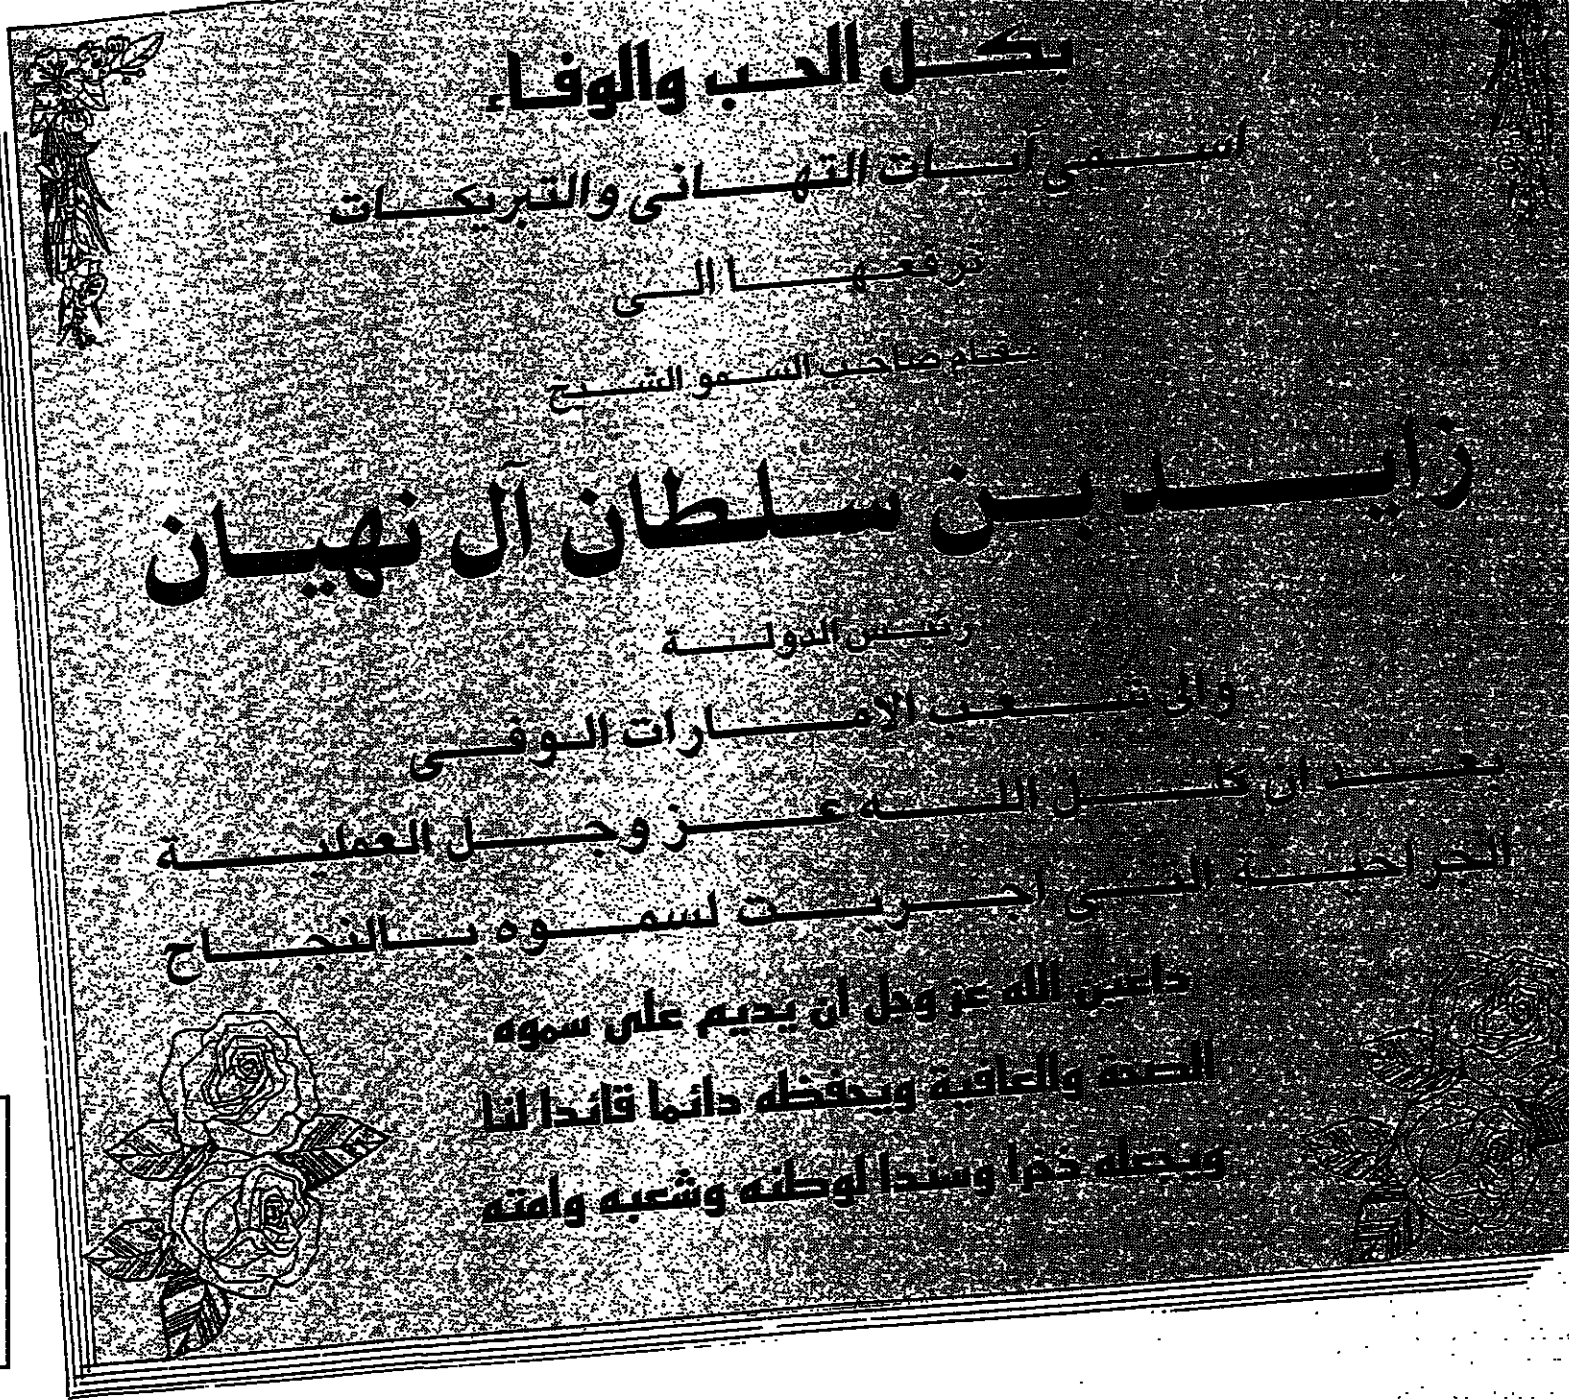 بكل الحب والوفاء
اسمى آيات التهاني والتبريكات
نرفعها الى
مقام صاحب السمو الشيخ
زايد بن سلطان آل نهيان
رئيس الدولة
والى شعب الامارات الوفي
بعد ان كلل الله عز وجل العملية
الجراحية التي اجريت لسموه بالنجاح
داعين الله عز وجل أن يديم على سموه
الصحة والعافية ويحفظه دائما قائدا لنا
ويجعله ذخرا وسندا لوطنه وشعبه وأمته